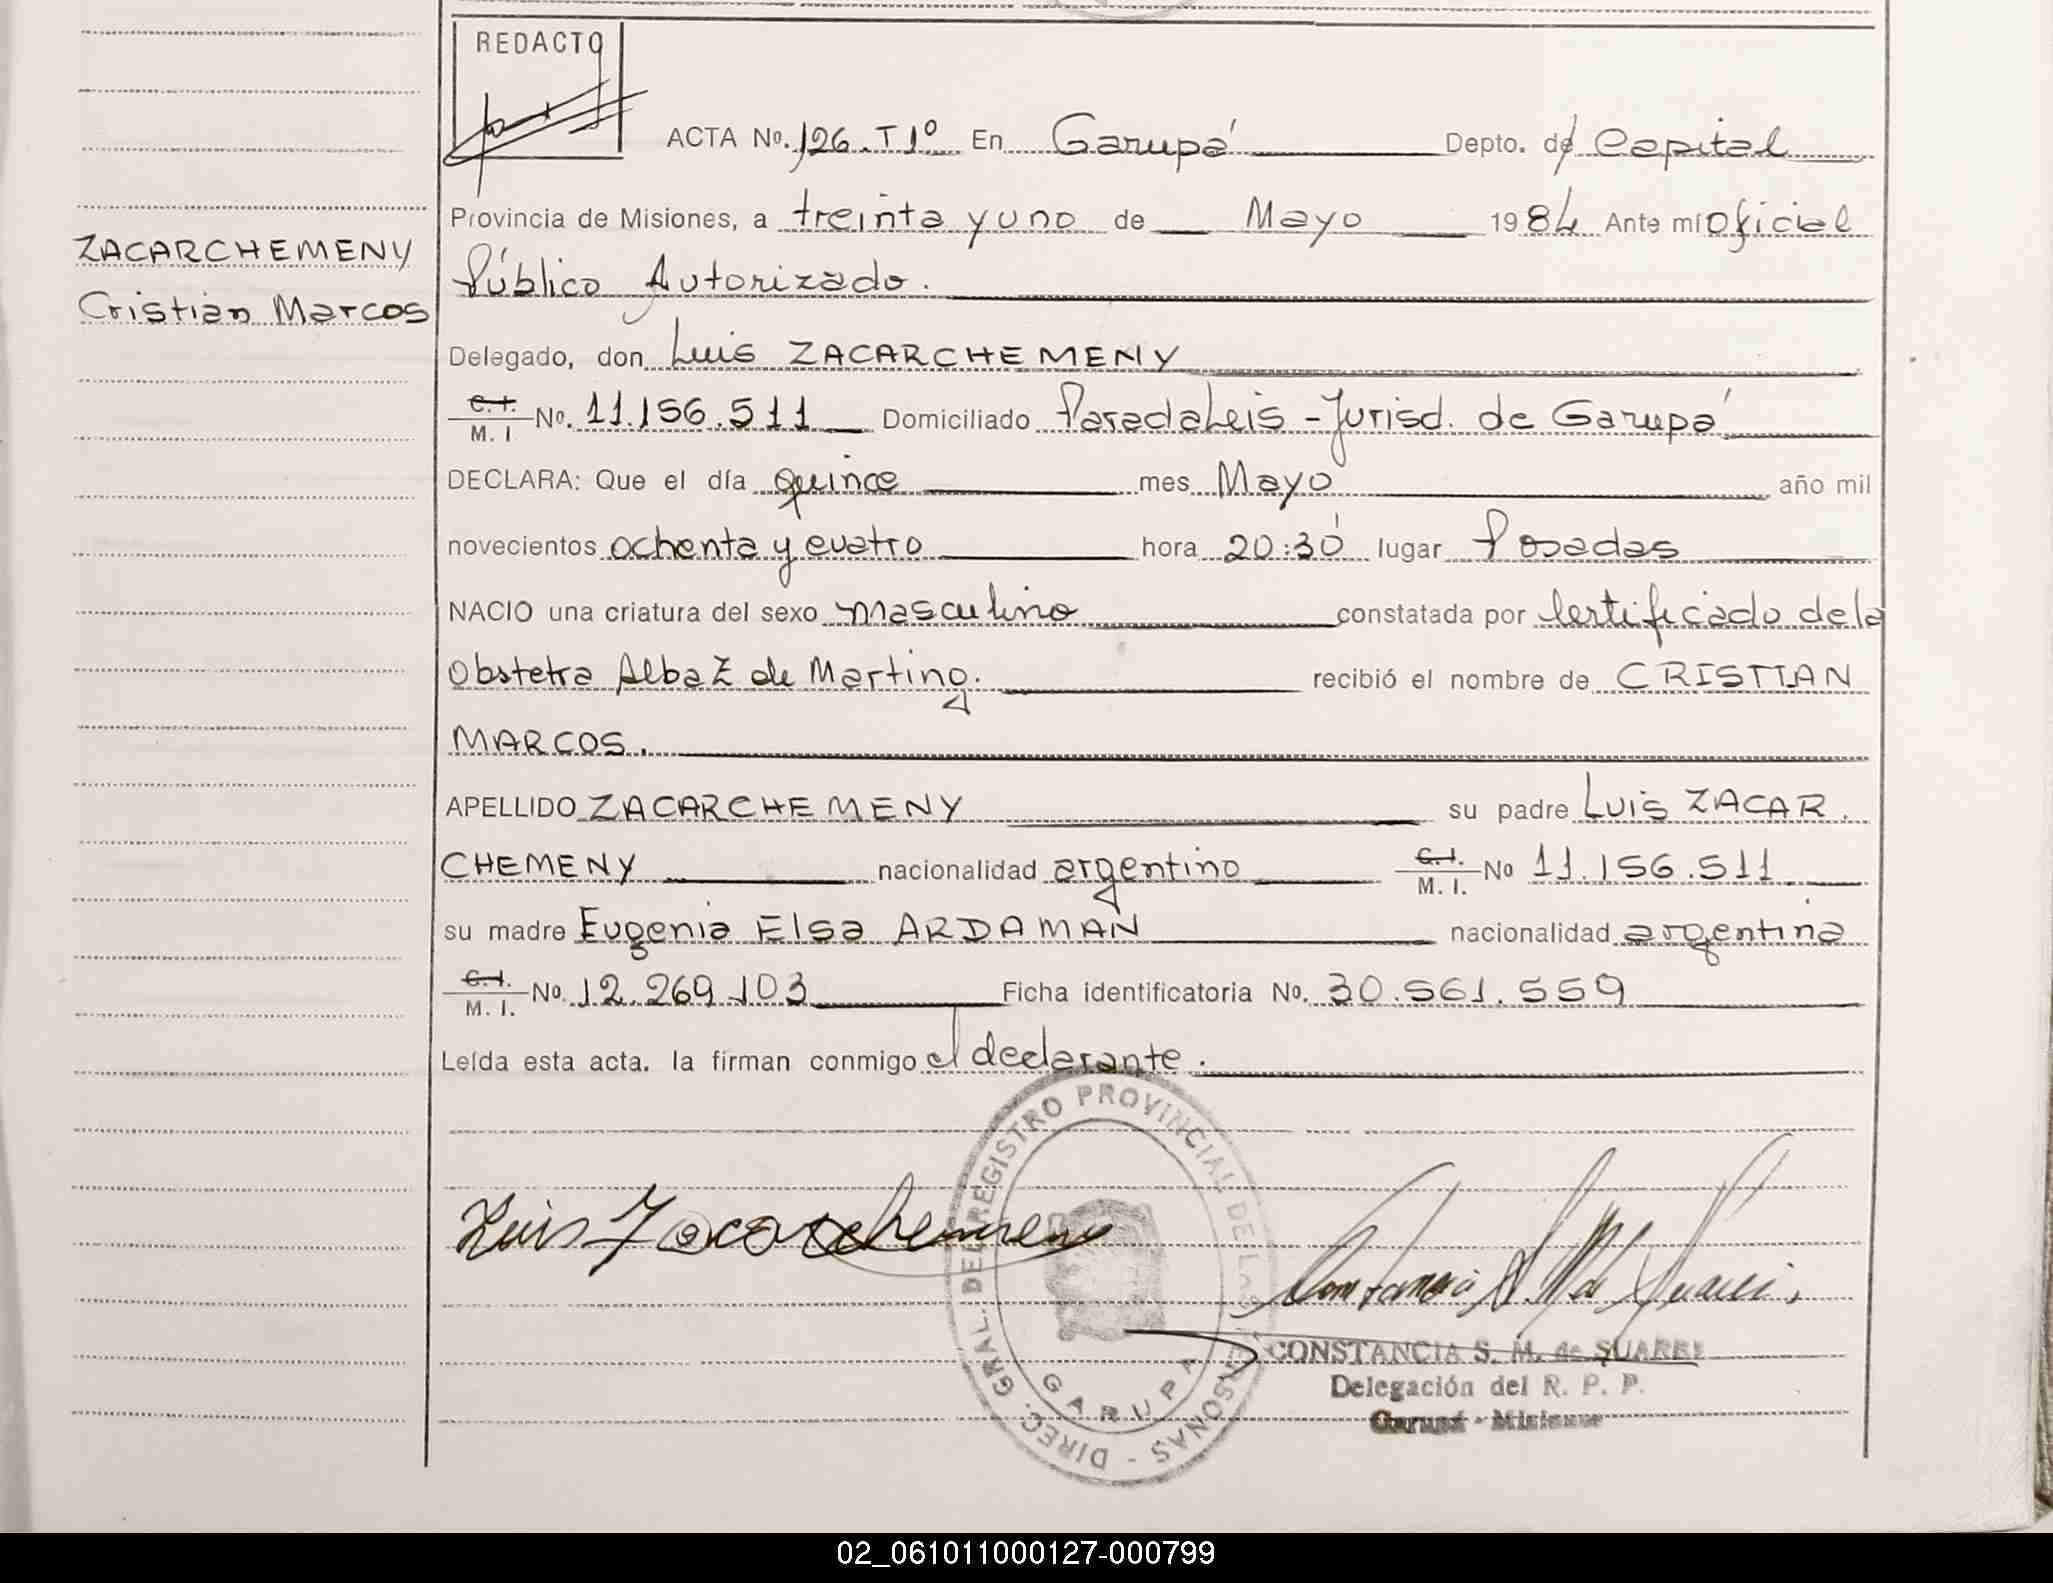 REDACTO
ACTA No. 126. T 1º En Garupá Depto. de Capital
Provincia de Misiones, a treinta y uno de Mayo 1984 Ante mí Oficial
ZACARCHEMENY
Público Autorizado.
Cristian Marcos
Delegado, don Luis ZACARCHEMENY
C. I. M. I No. 11.156.511 Domiciliado Parada Leis - Jurisd. de Garupá
DECLARA: Que el día quince mes Mayo año mil
novecientos ochenta y cuatro hora 20:30 lugar Posadas
NACIO una criatura del sexo masculino constatada por Certificado de la
Obstetra Alba Z de Martino. recibió el nombre de CRISTIAN
MARCOS.
APELLIDO ZACARCHEMENY su padre Luis ZACAR.
CHEMENY nacionalidad argentino C. I. M. I. No 11.156.511
su madre Eugenia Elsa ARDAMAN nacionalidad argentina
C. I. M. I. No. 12.269.103 Ficha identificatoria No. 30.561.559
Leída esta acta. la firman conmigo el declarante.
DIREC. GRAL. DEL REGISTRO PROVINCIAL DE LAS PERSONAS -
GARUPA
Luis Zacarchemeny
Constancia S. M. de Suarez
CONSTANCIA S. M. de SUAREZ
Delegación del R. P. P.
Garupá - Misiones
02_061011000127-000799